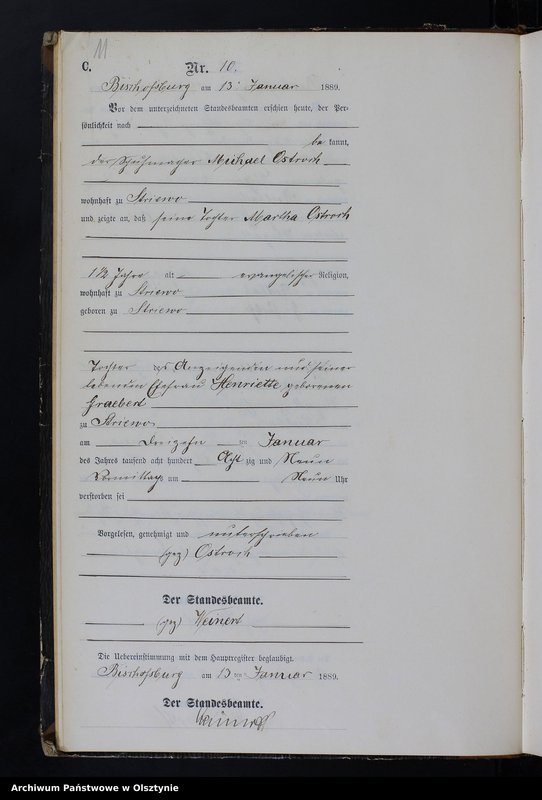 11
C.
Nr. 10.
Bischofsburg am 13. Januar 1889.
Vor dem unterzeichneten Standesbeamten erschien heute, der Per-
sönlichkeit nach
be kannt,
der Schuhmacher Michael Ostroch
wohnhaft zu Striewo
und zeigte an, daß seine Tochter Martha Ostroch
1 1/2 Jahre alt evangelischer Religion,
wohnhaft zu Striewo
geboren zu Striewo
Tochter des Anzeigenden und seiner
lebenden Ehefrau Henriette geborenen
Graebert
zu Striewo
am Dreizehnten Januar
des Jahres tausend acht hundert Acht zig und Neun
Vormittags um Neun Uhr
verstorben sei
Vorgelesen, genehmigt und unterschrieben
(gez) Ostroch
Der Standesbeamte.
(gez) Weinert
Die Uebereinstimmung mit dem Hauptregister beglaubigt.
Bischofsburg am 13ten Januar 1889.
Der Standesbeamte.
Weinert
Archiwum Państwowe w Olsztynie